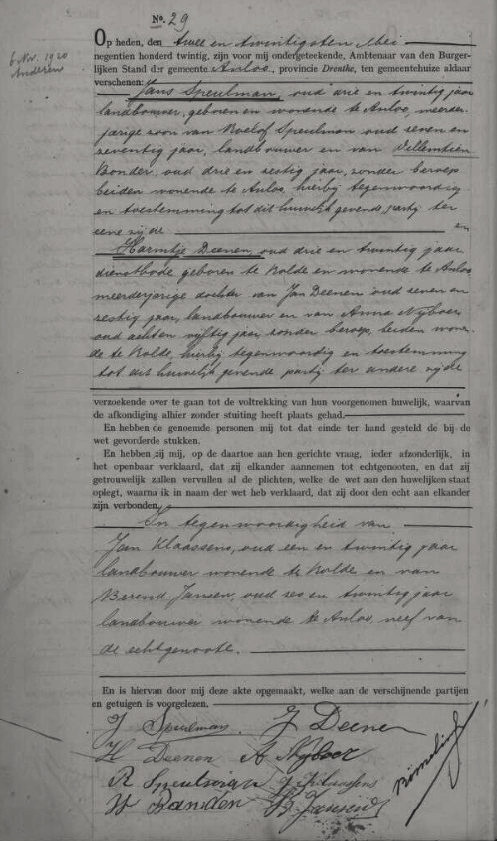 No. 29
6 Nov. 1920
Anderen
Op heden, den twee en twintigsten Mei
negentien honderd twintig, zijn voor mij ondergeteekende, Ambtenaar van den Burger-
lijken Stand der gemeente Anloo, provincie Drenthe, ten gemeentehuize aldaar
verschenen:
Jans Speulman, oud drie en twintig jaar
landbouwer, geboren en wonende te Anloo, meerder-
jarige zoon van Roelof Speulman oud zeven en
zeventig jaar, landbouwer en van Willemtien
Bonder, oud drie en zestig jaar, zonder beroep
beiden wonende te Anloo, hierbij tegenwoordig
en toestemming tot dit huwelijk gevende, partij ter
eene zijde en
Harmtje Deenen, oud drie en twintig jaar
dienstbode geboren te Rolde en wonende te Anloo
meerderjarige dochter van Jan Deenen oud zeven en
zestig jaar, landbouwer en van Anna Nijboer
oud acht en vijftig jaar, zonder beroep, beiden wonen-
de te Rolde, hierbij tegenwoordig en toestemming
tot dit huwelijk gevende partij ter andere zijde
verzoekende over te gaan tot de voltrekking van hun voorgenomen huwelijk, waarvan
de afkondiging alhier zonder stuiting heeft plaats gehad.
En hebben de genoemde personen mij tot dat einde ter hand gesteld de bij de
wet gevorderde stukken.
En hebben zij mij, op de daartoe aan hen gerichte vraag, ieder afzonderlijk, in
het openbaar verklaard, dat zij elkander aannemen tot echtgenooten, en dat zij
getrouwelijk zullen vervullen al de plichten, welke de wet aan den huwelijken staat
oplegt, waarna ik in naam der wet heb verklaard, dat zij door den echt aan elkander
zijn verbonden,
In tegenwoordigheid van
Jan Klaassens, oud een en twintig jaar
landbouwer wonende te Rolde, en van
Berend Jansen, oud zes en twintig jaar
landbouwer wonende te Anloo, neef van
de echtgenoote.
En is hiervan door mij deze akte opgemaakt, welke aan de verschijnende partijen
en getuigen is voorgelezen.
J Speulman. J Deenen
H Deenen A Nijboer
R Speulman J Klaassens
W B. Jansen